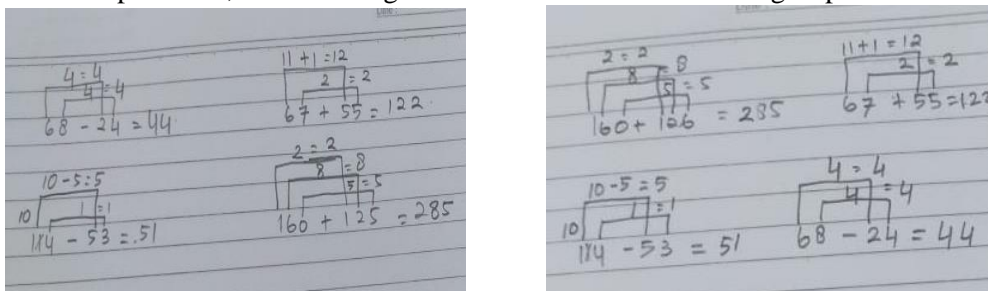 4 = 4
4 = 4
68 - 24 = 44
11 + 1 = 12
2 = 2
67 + 55 = 122
10 - 5 = 5
1 = 1
10
- 53 = 51
2 = 2
8 = 8
5 = 5
160 + 125 = 285
2 = 2
8 = 8
5 = 5
160 + 126 = 285
11 + 1 = 12
2 = 2
67 + 55 = 122
10 - 5 = 5
1 = 1
10
- 53 = 51
4 = 4
4 = 4
68 - 24 = 44